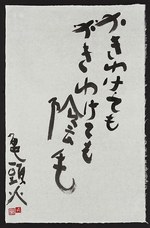 かきわけても
かきわけても
陰毛
亀頭火